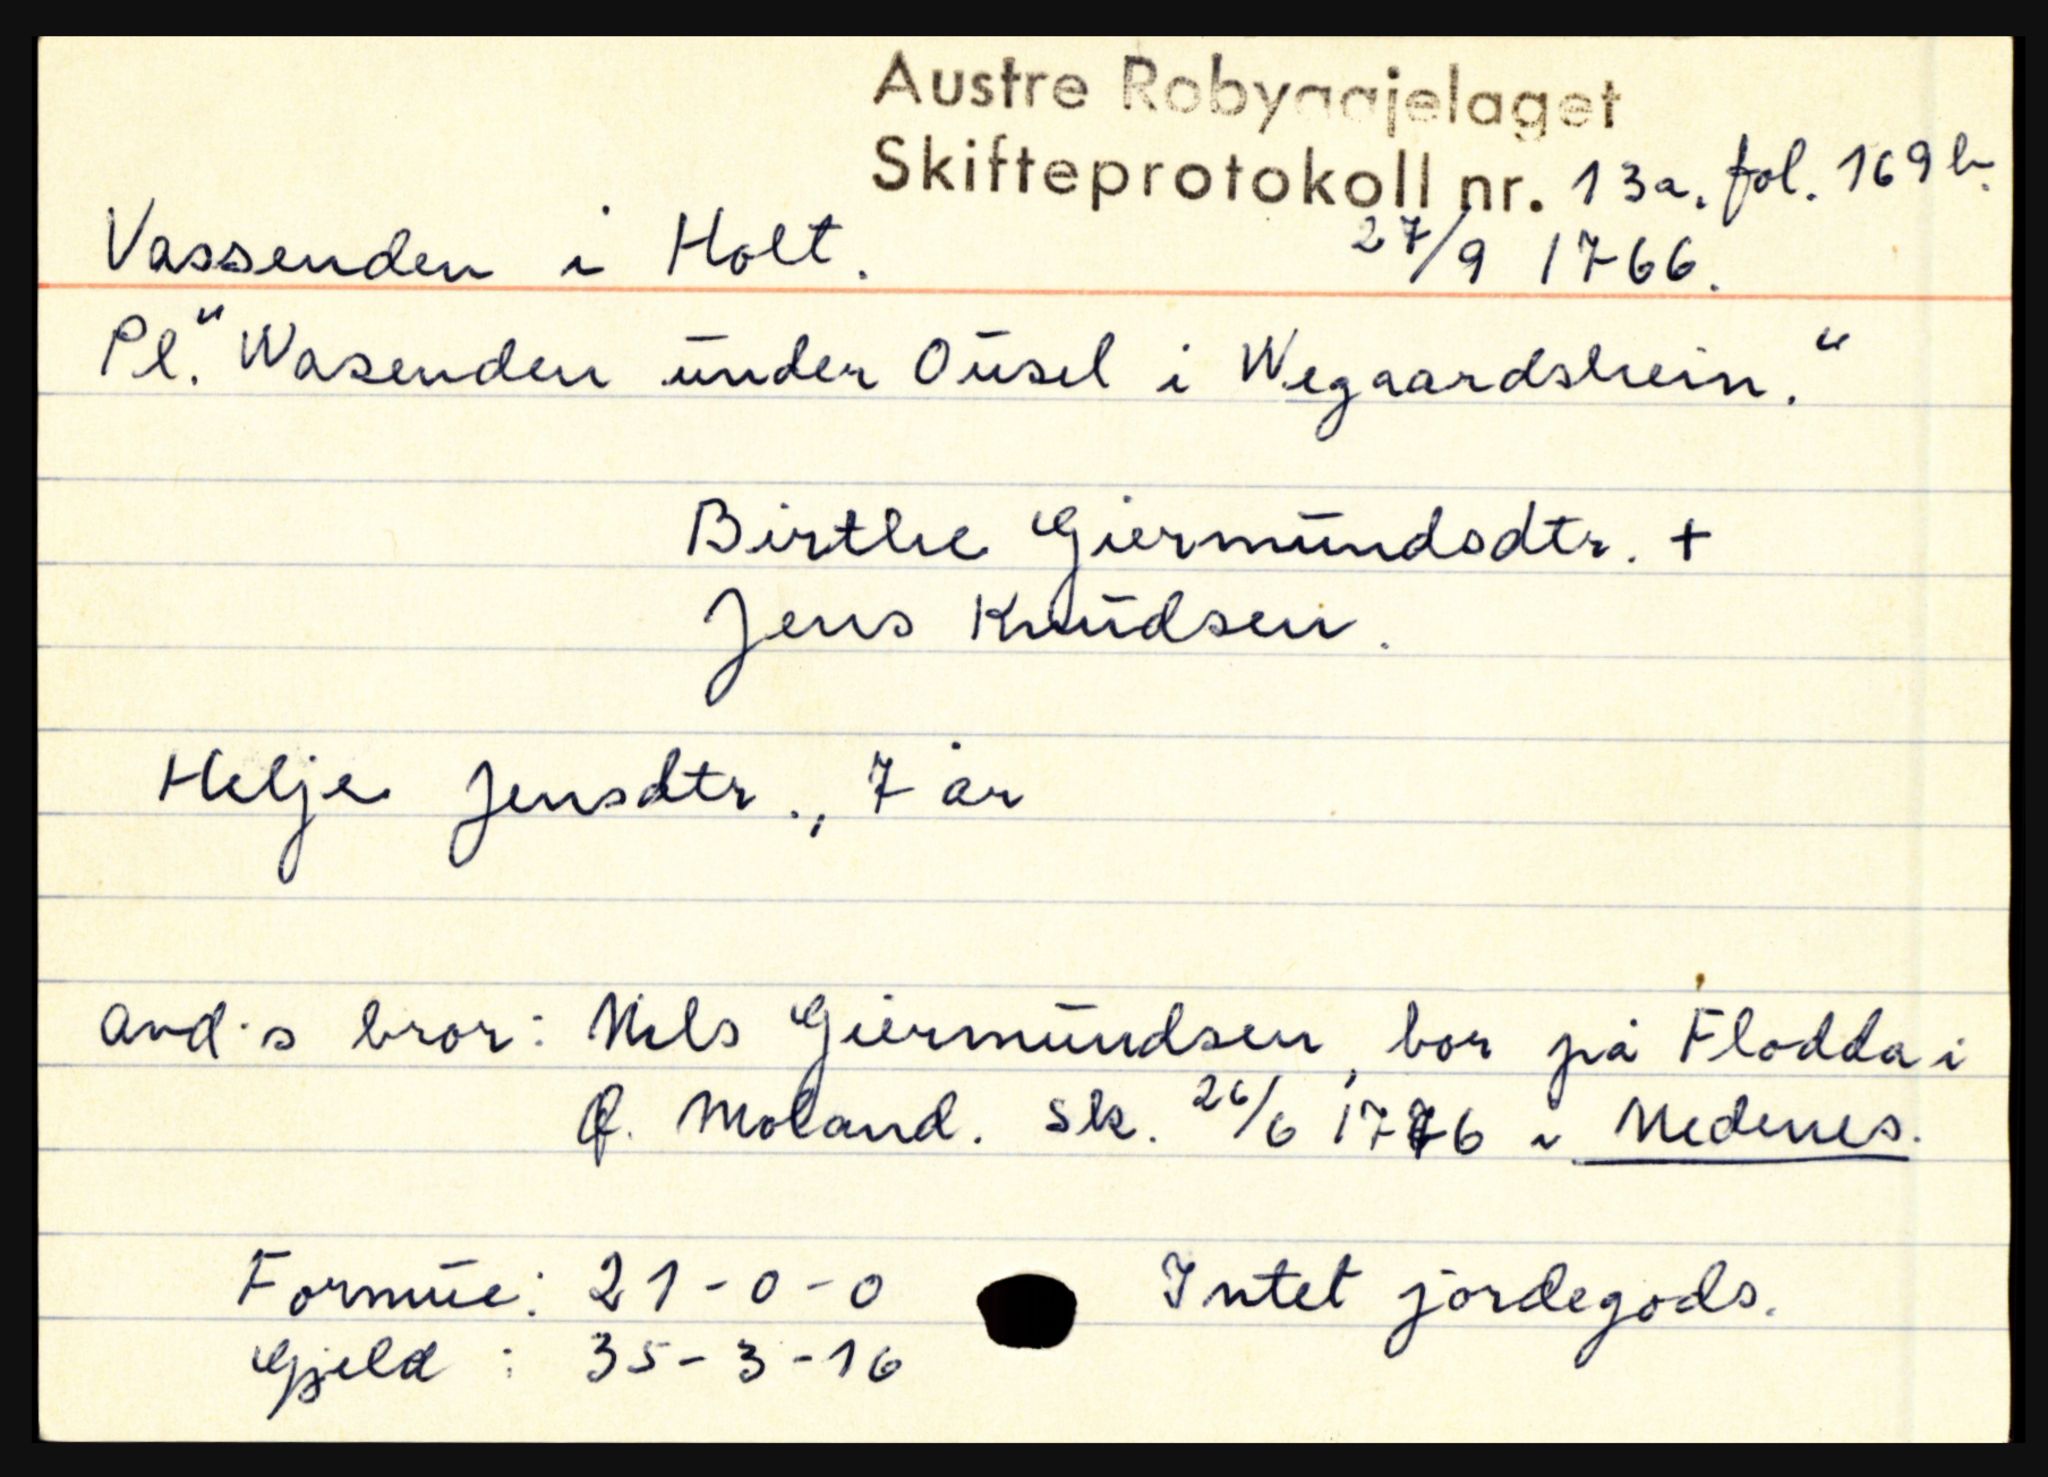 Austre Robyggjelaget
Skifteprotokoll nr. 13a. fol. 169 b.
Vassenden i Holt. 27/9 1766.
Pl. "Wasenden ūnder Oūsel i Wegaardshein."
Birthe Giermūndsdtr. +
Jens Knūdsen.
Helje Jensdtr., 7 år
avd.s bror: Nils Giermūndsen, bor på Flodda i
Ø. Moland. Sk. 26/6 1776 i Nedenes.
Formūe: 21-0-0 Intet jordegods.
Gjeld : 35-3-16